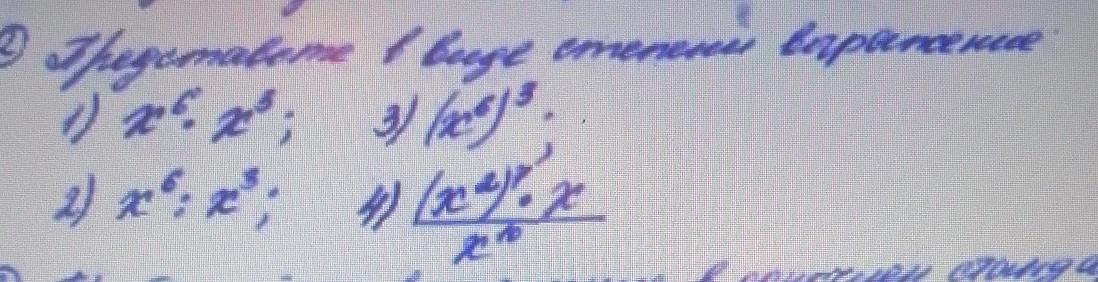 2) Представьте в виде степени выражение
1) x⁶ · x³; 3) (x⁶)³;
2) x⁶ : x³; 4) ((x²)⁷ · x) / x¹⁰